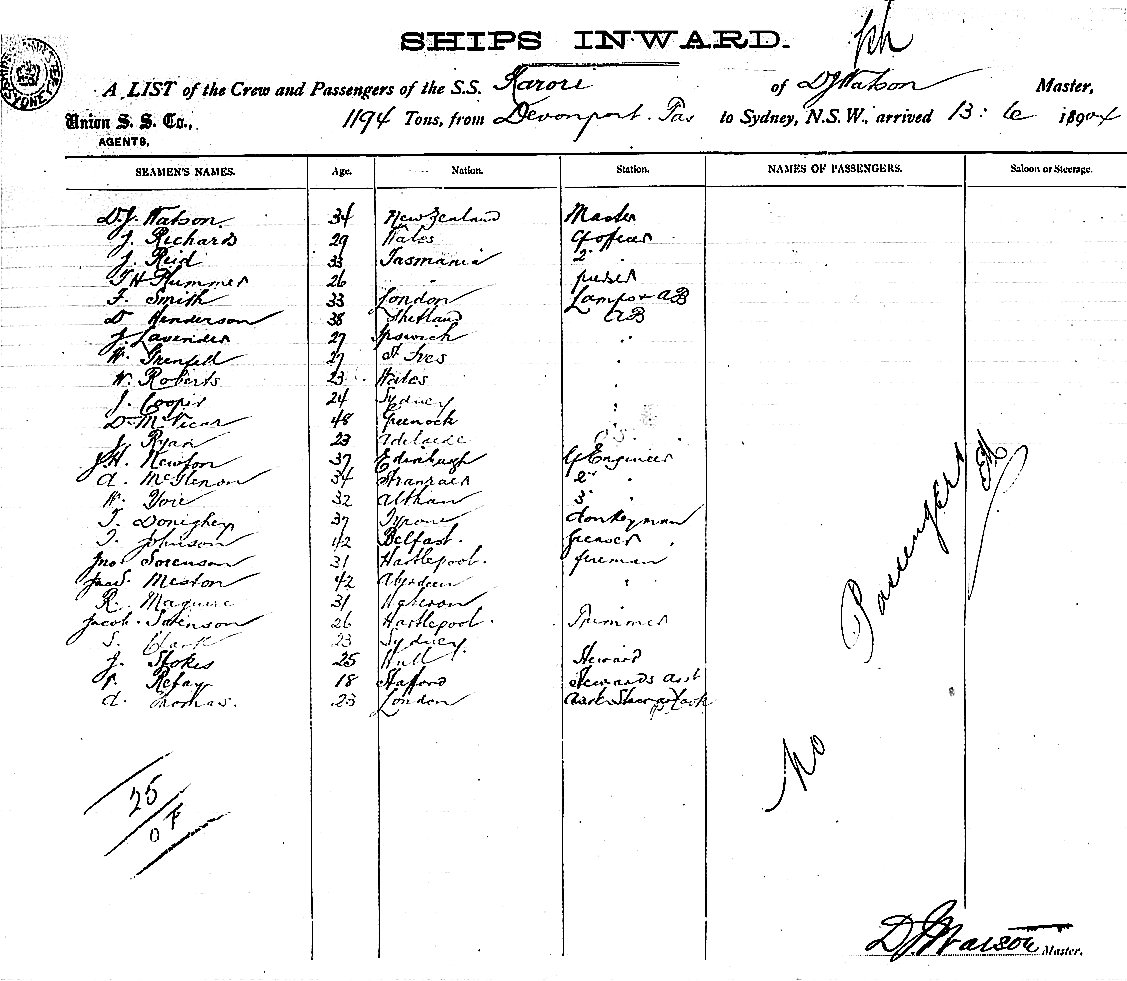 SHIPS INWARD.
A LIST of the Crew and Passengers of the S.S. Karori of D J Watson Master,
Union S. S. Co., 1194 Tons, from Devonport. Tas to Sydney, N.S.W., arrived 13: 6 1904
AGENTS,
SEAMEN'S NAMES. Age. Nation. Station. NAMES OF PASSENGERS. Saloon or Steerage.
D.J. Watson 34 New Zealand Master
J. Richards 29 Wales Officer
J. Reid 33 Tasmania 2
26 purser
F. Smith 33 London Lamps & AB
D Henderson 38 Shetland AB
J. Lavender 27 Ipswich "
W. Grenfell 27 St Ives "
W. Roberts 23 Wales "
J. Cooper 24 Sydney "
D. McVicar 48 Greenock
J. Ryan 23 Adelaide O.S.
J.H. Newton 37 Edinburgh Engineer
A. McGlenon 34 Stranraer 2nd "
W. 32 3 "
T. Doneghey 37 Tyrone donkeyman
T. Johnson 42 Belfast. greaser
Jno Sorenson 31 Hartlepool. fireman
Jas. Meston 42 Aberdeen "
R. Maguire 31 "
Jacob. Sorenson 26 Hartlepool. Trimmer
S. Clark 23 Sydney.
J. Stokes 25 Hull Steward
18 Stafford Stewards asst
A. Thomas. 23 London Cook
No Passengers
25
D J Watson Master.